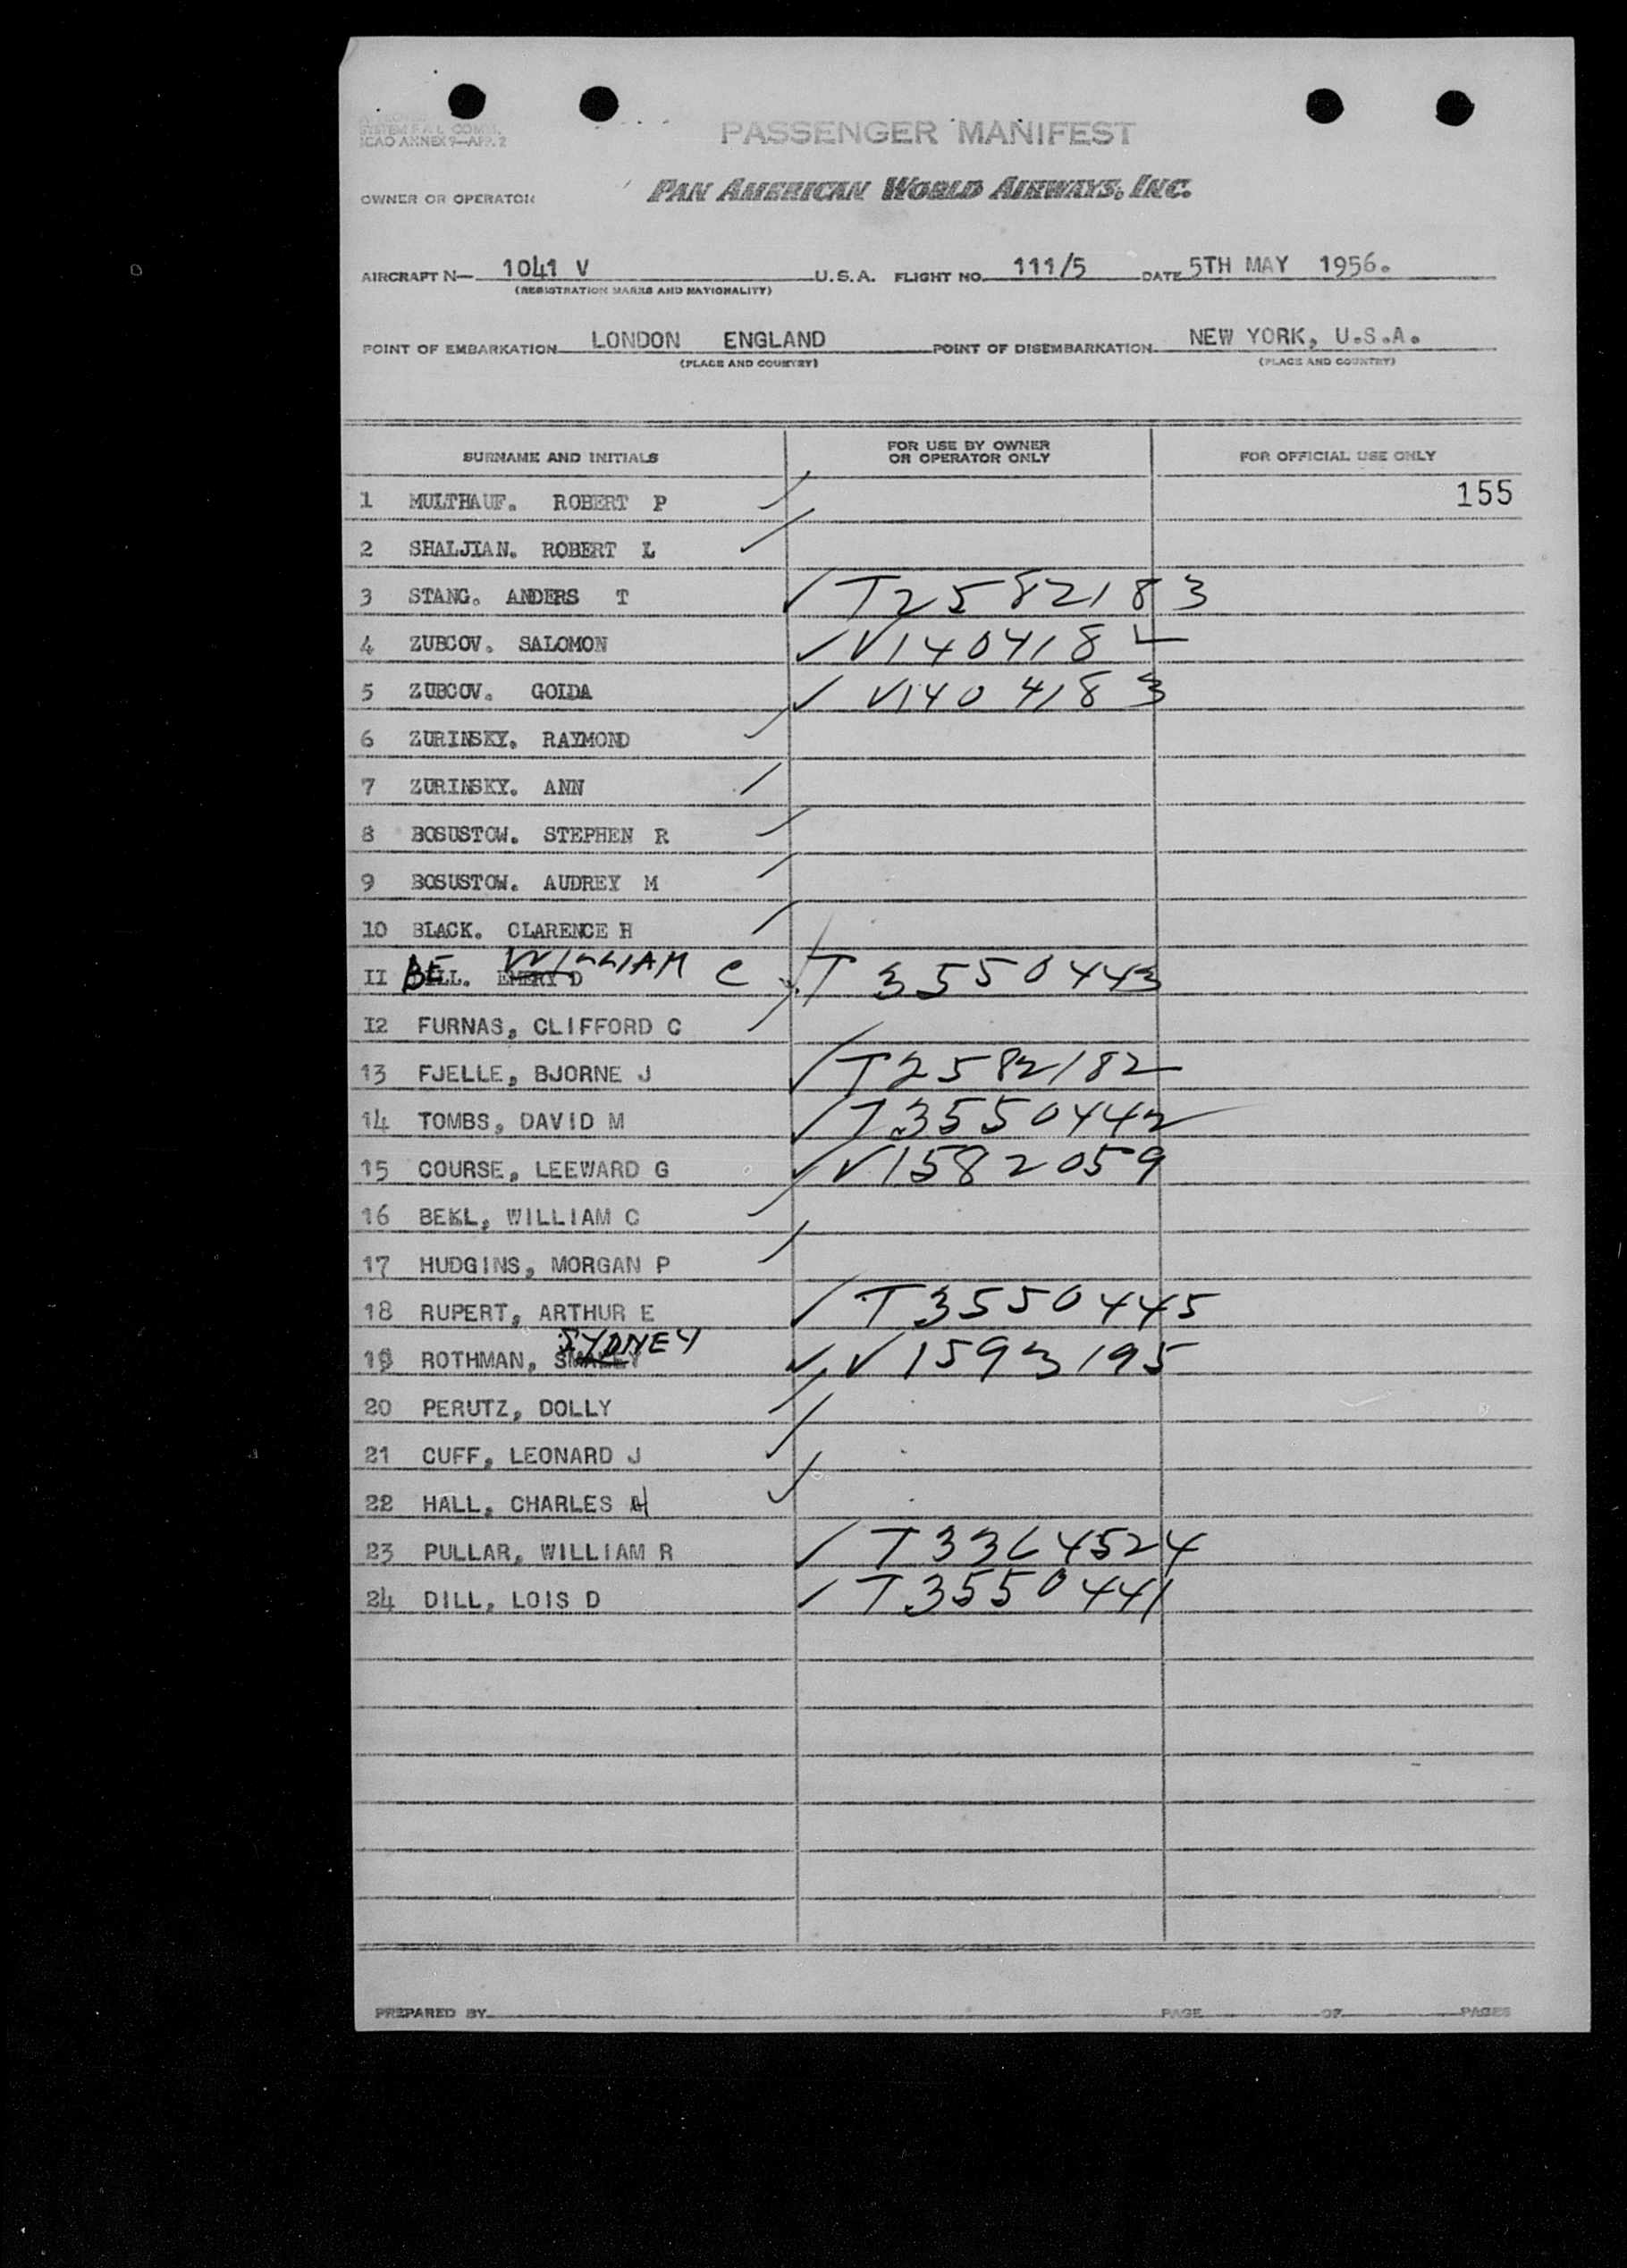 SYSTEM F.A.L. COMM.
ICAO ANNEX 9—APP. 2
PASSENGER MANIFEST
OWNER OR OPERATOR PAN AMERICAN WORLD AIRWAYS, INC.
AIRCRAFT N— 1041 V U.S.A. FLIGHT NO. 111/5 DATE 5TH MAY 1956.
(REGISTRATION MARKS AND NATIONALITY)
POINT OF EMBARKATION LONDON ENGLAND POINT OF DISEMBARKATION NEW YORK, U.S.A.
(PLACE AND COUNTRY) (PLACE AND COUNTRY)
SURNAME AND INITIALS FOR USE BY OWNER OR OPERATOR ONLY FOR OFFICIAL USE ONLY
1 MULTHAUF. ROBERT P 155
2 SHALJIAN. ROBERT L
3 STANG. ANDERS T ✓ T2582183
4 ZUBCOV. SALOMON ✓ V1404182
5 ZUBCOV. GOIDA ✓ V1404183
6 ZURINSKY. RAYMOND
7 ZURINSKY. ANN
8 BOSUSTOW. STEPHEN R
9 BOSUSTOW. AUDREY M
10 BLACK. CLARENCE H
11 BELL. EMERY D WILLIAM C T3550443
12 FURNAS, CLIFFORD C
13 FJELLE, BJORNE J ✓ T2582182
14 TOMBS, DAVID M ✓ T3550442
15 COURSE, LEEWARD G ✓ V1582059
16 BEKL, WILLIAM C
17 HUDGINS, MORGAN P
18 RUPERT, ARTHUR E ✓ T3550445
19 ROTHMAN, SYDNEY ✓ V1593195
20 PERUTZ, DOLLY
21 CUFF, LEONARD J
22 HALL, CHARLES H
23 PULLAR, WILLIAM R ✓ T3364524
24 DILL, LOIS D ✓ T3550441
PREPARED BY PAGE OF PAGES